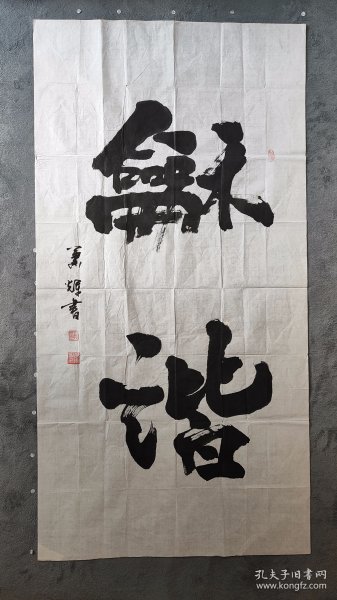 龢
谐
書
孔夫子旧书网
www.kongfz.com